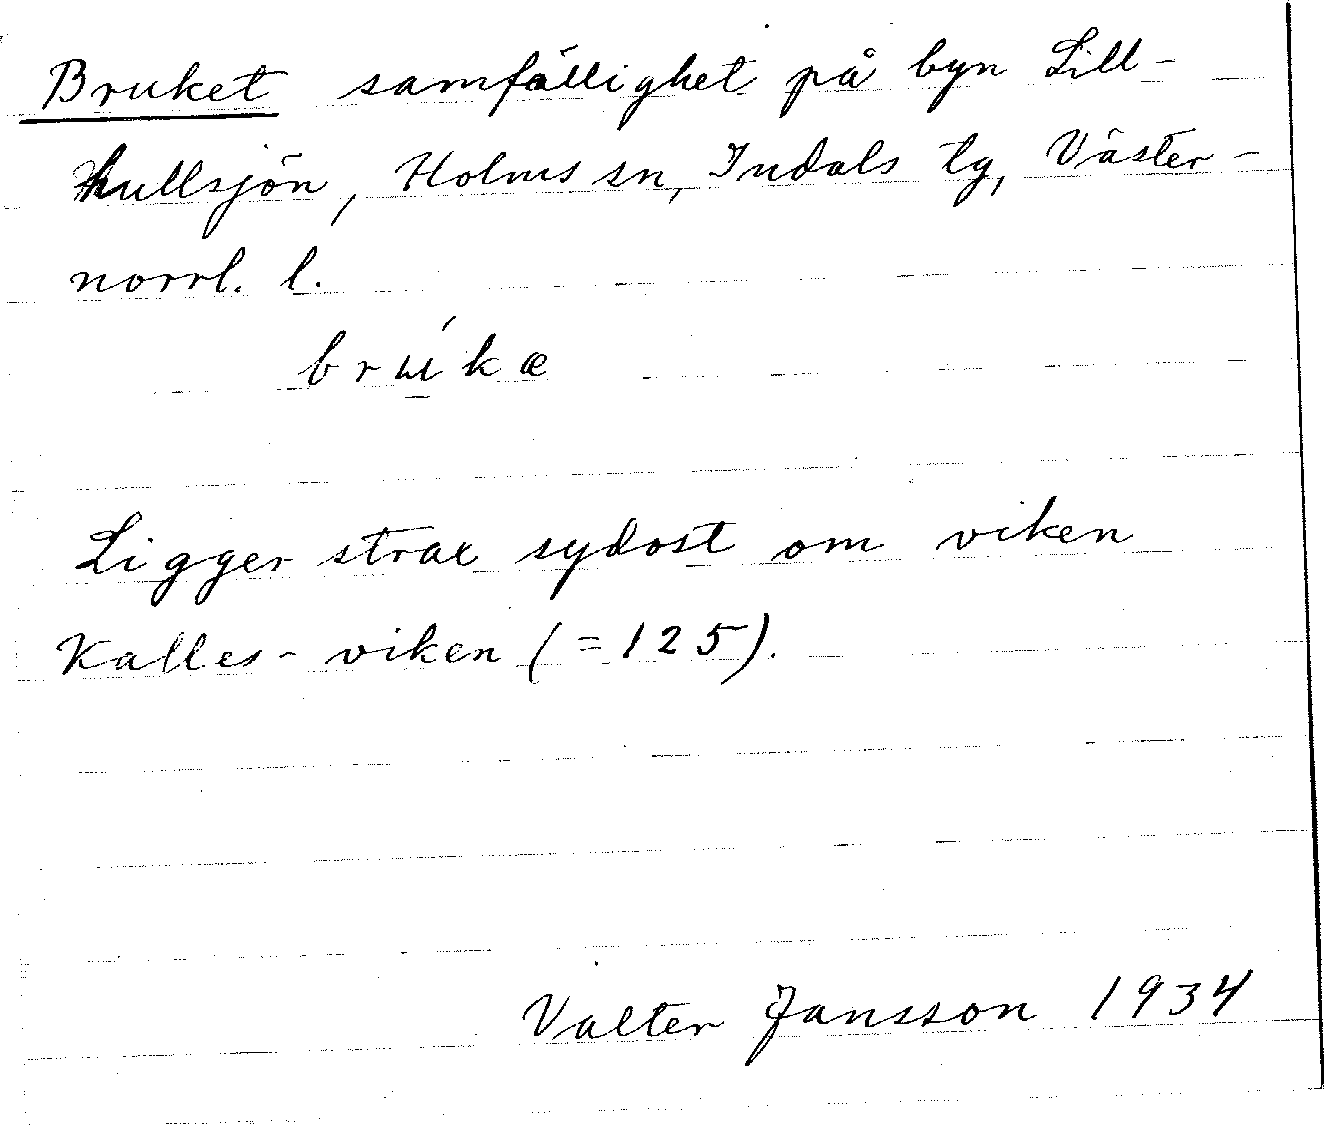 Bruket samfällighet på byn Lill-
hullsjön, Holms sn, Indals tg, Väster-
norrl. l.
brúkæ
Ligger strax sydost om viken
Kalles-viken (=125).
Valter Jansson 1934